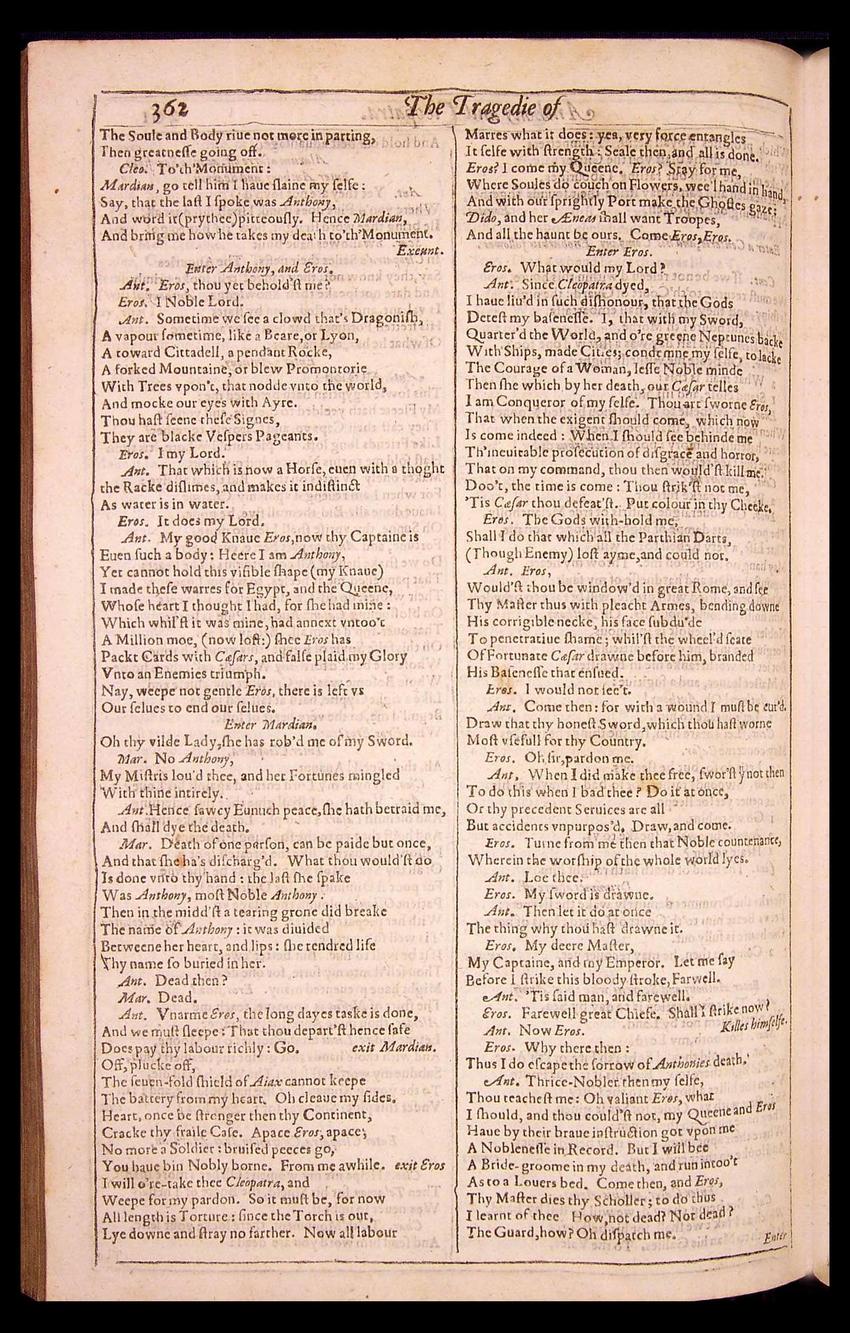 362
The Tragedie of
The Soule and Body riue not more in parting,
Then greatnesse going off.
Cleo. To'th'Monument:
Mardian, go tell him I haue slaine my selfe:
Say, that the last I spoke was Anthony,
And word it (prythee) pitteously. Hence Mardian,
And bring me how he takes my death to'th'Monument.
Exeunt.
Enter Anthony, and Eros.
Ant. Eros, thou yet behold'st me?
Eros. I Noble Lord.
Ant. Sometime we see a clowd that's Dragonish,
A vapour sometime, like a Beare, or Lyon,
A toward Cittadell, a pendant Rocke,
A forked Mountaine, or blew Promontorie
With Trees vpon't, that nodde vnto the world,
And mocke our eyes with Ayre.
Thou hast seene these Signes,
They are blacke Vespers Pageants.
Eros. I my Lord.
Ant. That which is now a Horse, euen with a thoght
the Racke dislimes, and makes it indistinct
As water is in water.
Eros. It does my Lord.
Ant. My good Knaue Eros, now thy Captaine is
Euen such a body: Heere I am Anthony,
Yet cannot hold this visible shape (my Knaue)
I made these warres for Egypt, and the Queene,
Whose heart I thought I had, for she had mine:
Which whil'st it was mine, had annext vntoo't
A Million moe, (now lost:) shee Eros has
Packt Cards with Cæsars, and false plaid my Glory
Vnto an Enemies triumph.
Nay, weepe not gentle Eros, there is left vs
Our selues to end our selues.
Enter Mardian.
Oh thy vilde Lady, she has rob'd me of my Sword.
Mar. No Anthony,
My Mistris lou'd thee, and her Fortunes mingled
With thine intirely.
Ant. Hence sawcy Eunuch peace, she hath betraid me,
And shall dye the death.
Mar. Death of one person, can be paide but once,
And that she ha's discharg'd. What thou would'st do
Is done vnto thy hand: the last she spake
Was Anthony, most Noble Anthony.
Then in the midd'st a tearing grone did breake
The name of Anthony: it was diuided
Betweene her heart, and lips: she rendred life
Thy name so buried in her.
Ant. Dead then?
Mar. Dead.
Ant. Vnarme Eros, the long dayes taske is done,
And we must sleepe: That thou depart'st hence safe
Does pay thy labour richly: Go. exit Mardian.
Off, plucke off,
The seuen-fold shield of Aiax cannot keepe
The battery from my heart. Oh cleaue my sides.
Heart, once be stronger then thy Continent,
Cracke thy fraile Case. Apace Eros, apace;
No more a Soldier: bruised peeces go,
You haue bin Nobly borne. From me awhile. exit Eros
I will o're-take thee Cleopatra, and
Weepe for my pardon. So it must be, for now
All length is Torture: since the Torch is out,
Lye downe and stray no farther. Now all labour
Marres what it does: yea, very force entangles
It selfe with strength: Seale then, and all is done.
Eros? I come my Queene. Eros? Stay for me,
Where Soules do couch on Flowers, wee'l hand in hand,
And with our sprightly Port make the Ghostes gaze:
Dido, and her Æneas shall want Troopes,
And all the haunt be ours. Come Eros, Eros.
Enter Eros.
Eros. What would my Lord?
Ant. Since Cleopatra dyed,
I haue liu'd in such dishonour, that the Gods
Detest my basenesse. I, that with my Sword,
Quarter'd the World, and o're greene Neptunes backe
With Ships, made Cities; condemne my selfe, to lacke
The Courage of a Woman, lesse Noble minde
Then she which by her death, our Cæsar telles
I am Conqueror of my selfe. Thou art sworne Eros,
That when the exigent should come, which now
Is come indeed: When I should see behinde me
Th'ineuitable prosecution of disgrace and horror,
That on my command, thou then would'st kill me.
Doo't, the time is come: Thou strik'st not me,
'Tis Cæsar thou defeat'st. Put colour in thy Cheeke.
Eros. The Gods with-hold me,
Shall I do that which all the Parthian Darts,
(Though Enemy) lost ayme, and could not.
Ant. Eros,
Would'st thou be window'd in great Rome, and see
Thy Master thus with pleacht Armes, bending downe
His corrigible necke, his face subdu'de
To penetratiue shame; whil'st the wheel'd seate
Of Fortunate Cæsar drawne before him, branded
His Basenesse that ensued.
Eros. I would not see't.
Ant. Come then: for with a wound I must be cur'd.
Draw that thy honest Sword, which thou hast worne
Most vsefull for thy Country.
Eros. Oh sir, pardon me.
Ant. When I did make thee free, swor'st yͧ not then
To do this when I bad thee? Do it at once,
Or thy precedent Seruices are all
But accidents vnpurpos'd. Draw, and come.
Eros. Turne from me then that Noble countenance,
Wherein the worship of the whole world lyes.
Ant. Loe thee.
Eros. My sword is drawne.
Ant. Then let it do at once
The thing why thou hast drawne it.
Eros. My deere Master,
My Captaine, and my Emperor. Let me say
Before I strike this bloody stroke, Farwell.
Ant. 'Tis said man, and farewell.
Eros. Farewell great Chiefe. Shall I strike now?
Ant. Now Eros. Killes himselfe.
Eros. Why there then:
Thus I do escape the sorrow of Anthonies death.
Ant. Thrice-Nobler then my selfe,
Thou teachest me: Oh valiant Eros, what
I should, and thou could'st not, my Queene and Eros
Haue by their braue instruction got vpon me
A Noblenesse in Record. But I will bee
A Bride-groome in my death, and run intoo't
As to a Louers bed. Come then, and Eros,
Thy Master dies thy Scholler; to do thus
I learnt of thee. How, not dead? Not dead?
The Guard, how? Oh dispatch me.
Enter